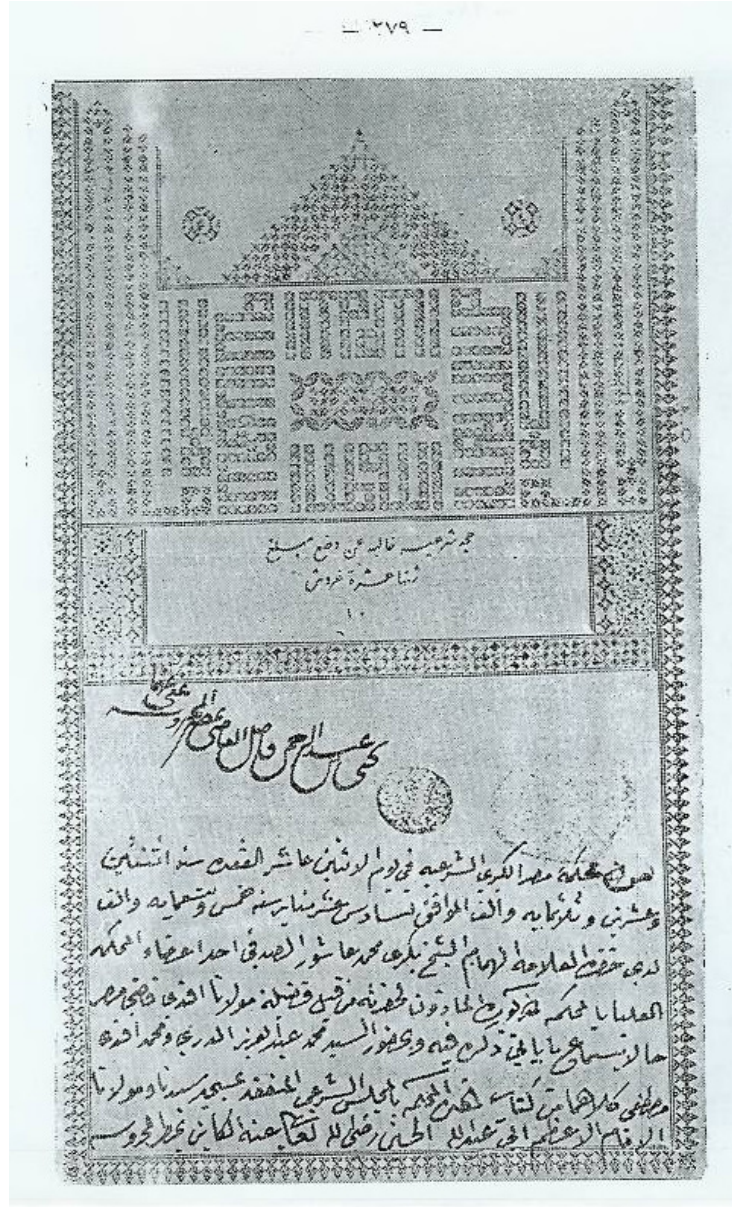 — ٢٧٩ —
حجة شرعيه خاليه عن وضع مبلغ
عشرة غروش
١٠
عبد الرحمن فاضل القاضي بمصر المحروسه
بمحكمة مصر الكبرى الشرعيه في يوم الاثنين عاشر القعده سنه اثنين
وعشرين وثلاثمايه والف الموافق لسادس عشر يناير سنه خمس وتسعمايه والف
لدى حضرة العلامه الهمام الشيخ بكرى محمد عاشور الصدفى احد اعضاء المحكمه
العليا بالمحكمه المذكوره المأذون لحضرته من قبل فضيلة مولانا افندى قاضى مصر
حالا بسماع ما ياتى ذكره فيه وبحضور السيد محمد عبد العزيز الدرى ومحمد افندى
مصطفى كلاهما من كتاب المحكمه بالمجلس الشرعى المنعقد بمسجد سيدنا ومولانا
الامام الاعظم ابى عبد الله الحسين رضى الله تعالى عنه الكاين بخط المحروسه